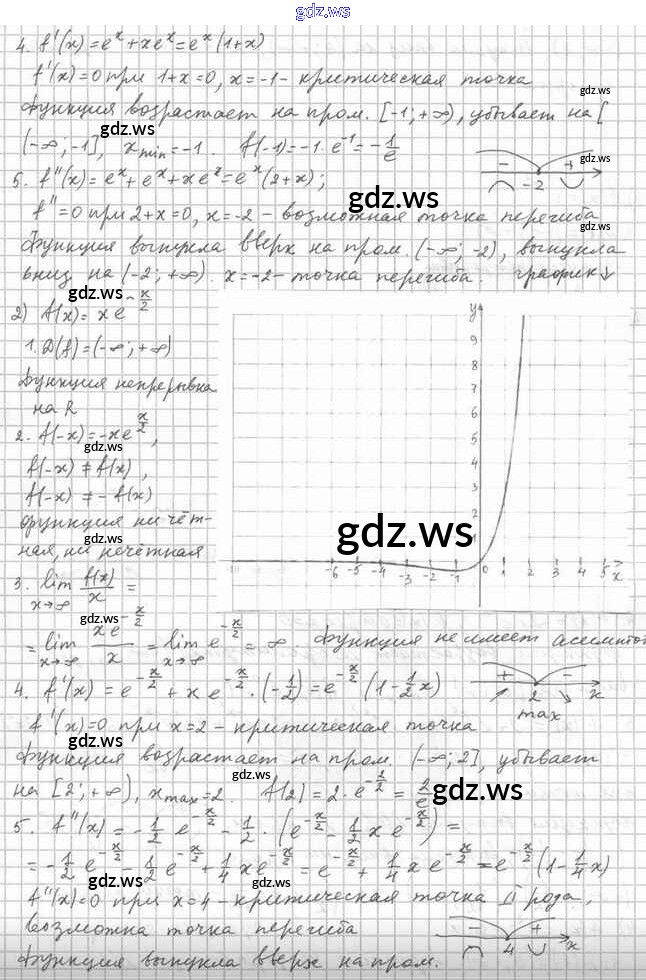 gdz.ws
4. f'(x) = e^x + xe^x = e^x(1+x)
f'(x) = 0 при 1+x = 0, x = -1 - критическая точка
gdz.ws
функция возрастает на пром. [-1; +∞), убывает на [
gdz.ws
gdz.ws
(-∞; -1], x min = -1. f(-1) = -1 · e^-1 = -1/e
- +
-2
gdz.ws
5. f''(x) = e^x + e^x + xe^x = e^x(2+x);
gdz.ws
f'' = 0 при 2+x = 0, x = -2 - возможная точка перегиба
gdz.ws
функция выпукла вверх на пром. (-∞; -2), выпукла
вниз на (-2; +∞). x = -2 - точка перегиба. график ↓
gdz.ws
2) f(x) = xe^-x/2
1. D(f) = (-∞; +∞)
функция непрерывна
на R
2. f(-x) = -xe^x/2,
gdz.ws
f(-x) ≠ f(x),
f(-x) ≠ -f(x)
функция ни чёт-
gdz.ws
ная, ни нечётная
y
9
8
7
6
5
4
3
2
gdz.ws
-6 -5 -4 -3 -2 -1 0 1 2 3 4 5 x
3. lim x→∞ f(x)/x =
gdz.ws
= lim x→∞ xe^-x/2 / x = lim x→∞ e^-x/2 = ∞ функция не имеет асимптот
4. f'(x) = e^-x/2 + xe^-x/2 · (-1/2) = e^-x/2 (1 - 1/2 x)
+ -
2 x
max
f'(x) = 0 при x = 2 - критическая точка
gdz.ws
функция возрастает на пром. (-∞; 2], убывает
gdz.ws
на [2; +∞), x max = 2. f(2) = 2 · e^-2/2 = 2/e
gdz.ws
5. f''(x) = -1/2 e^-x/2 - 1/2 · (e^-x/2 - 1/2 xe^-x/2) =
= -1/2 e^-x/2 - 1/2 e^-x/2 + 1/4 xe^-x/2 = e^-x/2 + 1/4 x e^-x/2 = e^-x/2 (1 - 1/4 x)
gdz.ws
gdz.ws
f''(x) = 0 при x = 4 - критическая точка II рода,
возможна точка перегиба
- +
4 x
gdz.ws
функция выпукла вверх на пром.